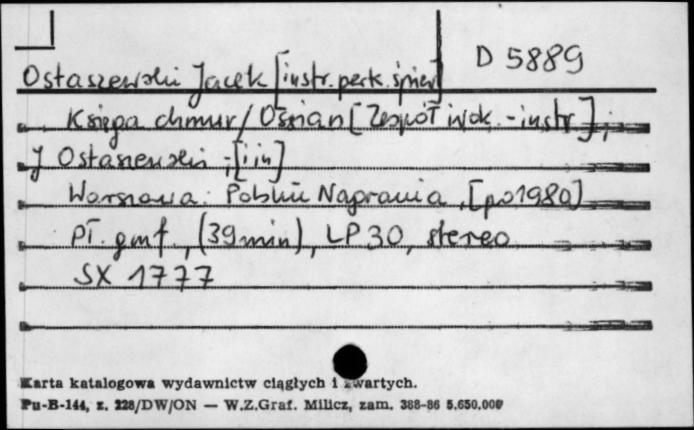 D 5889
Ostaszewski Jacek [instr. perk. śpiew]
Księga chmur / Ossian [Zespół wok.-instr.];
J Ostaszewski ; [i in]
Warszawa: Polskie Nagrania, [po 1980]
Pł. gmf., (39 min), LP 30, stereo
SX 1777
Karta katalogowa wydawnictw ciągłych i zwartych.
Pu-B-144, z. 228/DW/ON — W.Z.Graf. Milicz, zam. 388-86 5.650.000